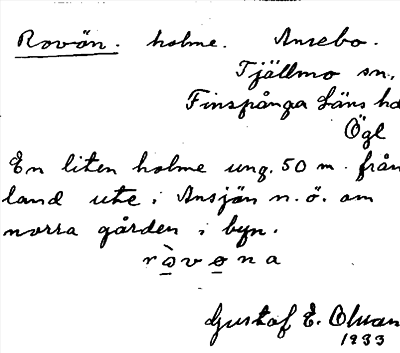 Rovön. holme. Ansebo.
Tjällmo sn.
Finspånga Läns hd
Ögl
En liten holme ung. 50 m. från
land ute i Ansjön n. ö. om
norra gården i byn.
r ò v o n a
Gustaf E. Olsson
1933